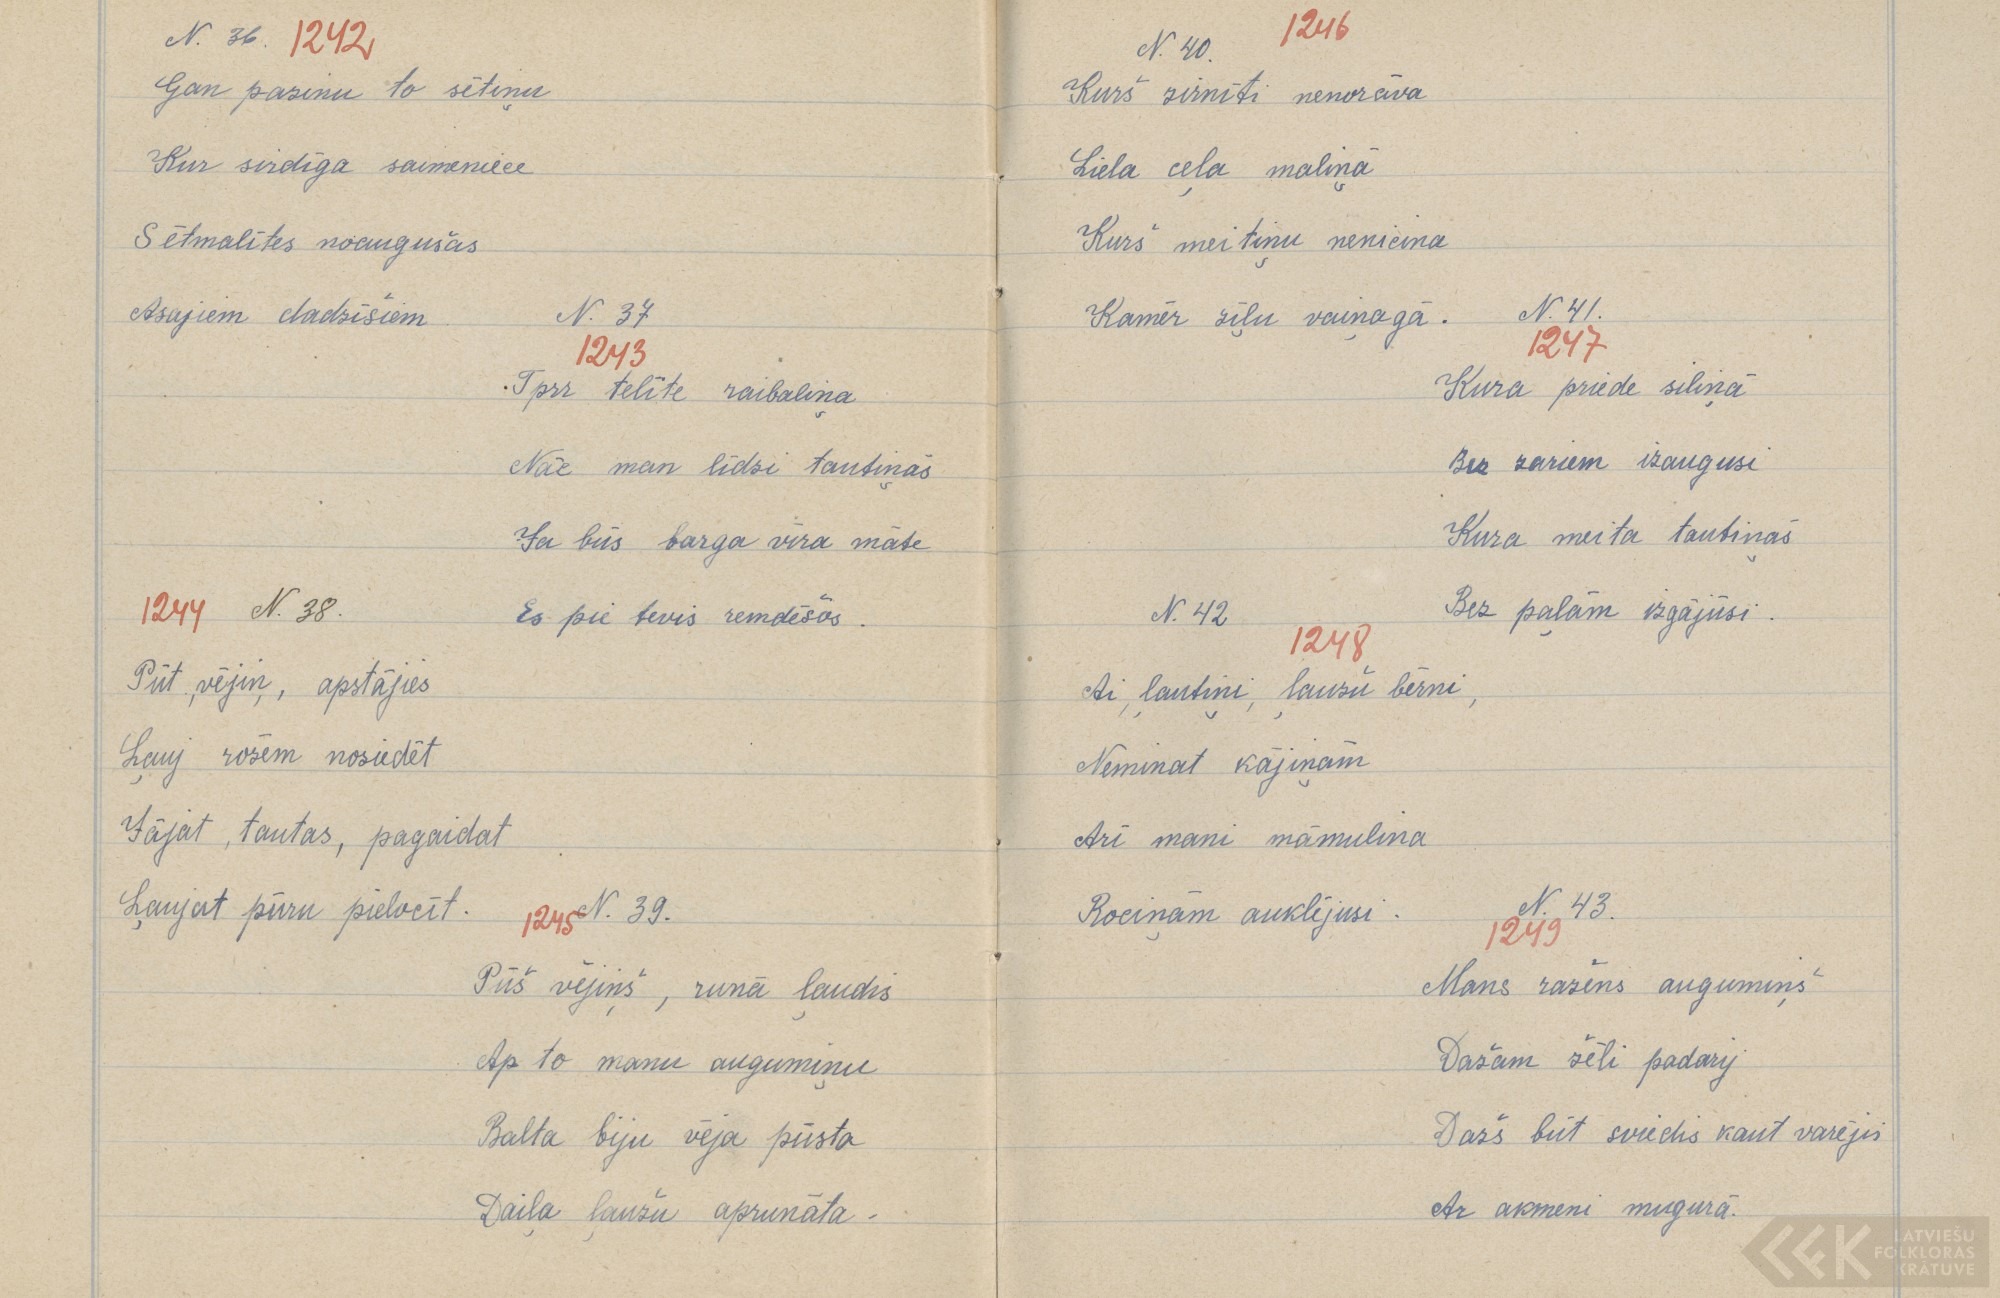 N. 36. 1242
Gan pazinu to sētiņu
Kur sirdīga saimeniece
Sētmalītes noaugušas
Asajiem dadzīšiem
N. 37
1243
Tprr telīte raibaliņa
Nāc man līdzi tautiņās
Ja būs barga vīra māte
Es pie tevis remdēšos.
1244 N. 38.
Pūt, vējiņ, apstājies
Ļauj rožem noziedēt
Jājat, tautas, pagaidat
Ļaujat pūru pielocīt.
1245 N. 39.
Pūš vējiņš, runā ļaudis
Ap to manu augumiņu
Balta biju vēja pūsta
Daiļa ļaužu aprunāta.
1246
N. 40.
Kurš zirnīti nenorāva
Liela ceļa maliņā
Kurš meitiņu nenicina
Kamēr zīļu vaiņagā.
N. 41.
1247
Kura priede siliņā
Bez zariem izaugusi
Kura meita tautiņās
Bez paļām izgājūsi.
N. 42
1248
Ai, ļautiņi, ļaužu bērni,
Neminat kājiņām
Arī mani māmulina
Rociņām auklējusi.
N. 43.
1249
Mans ražens augumiņš
Dažam žēli padarij
Dažs būt sviedis kaut varējis
Ar akmeni mugurā.
LATVIEŠU
FOLKLORAS
KRĀTUVE